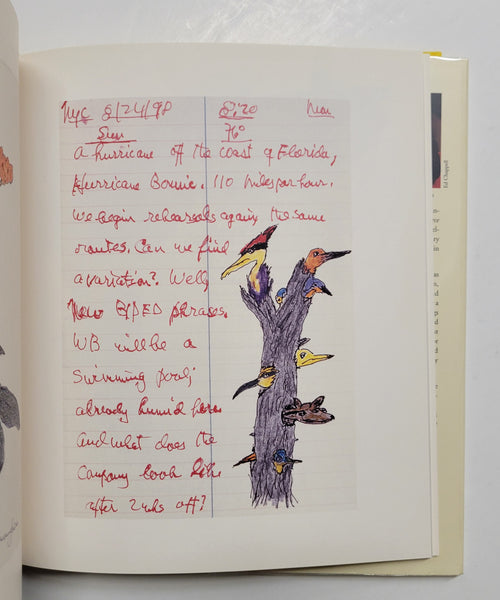 NYC 8/24/98 8:20 Mon
Sun 76°
a hurricane off the coast of Florida,
Hurricane Bonnie. 110 miles per hour.
We begin rehearsals again, the same
routes. Can we find
a variation? Well,
New BIPED phrases.
WB will be a
swimming pool;
already humid here
And what does the
Company look like
after 2 wks off?
Ed Chappell